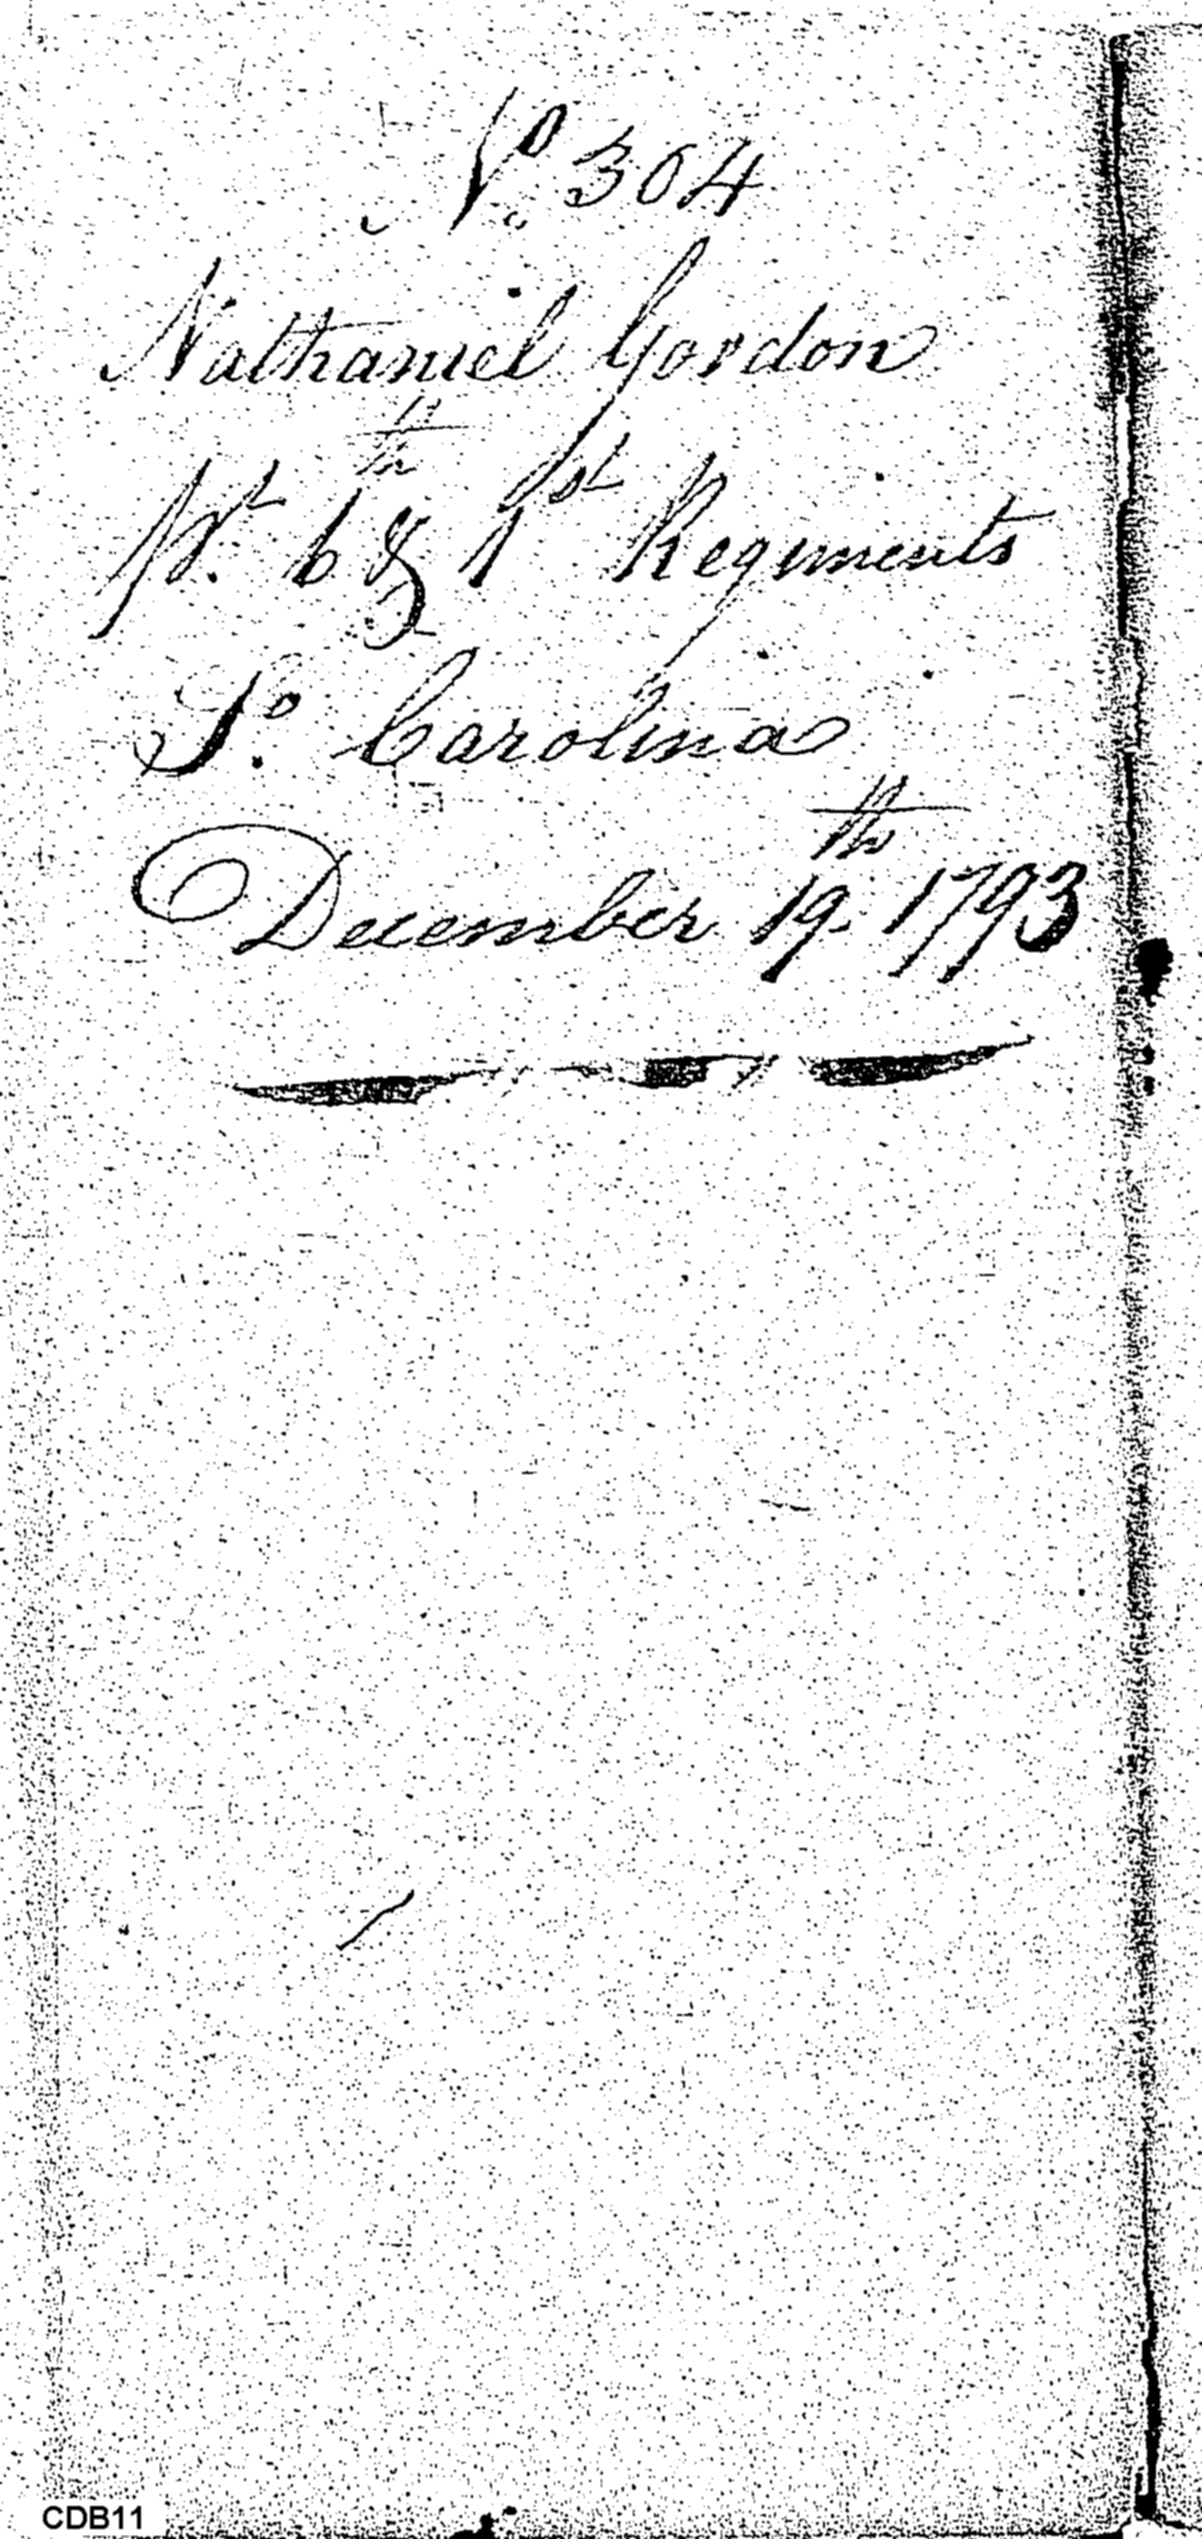 No. 304
Nathaniel Gordon
Pvt. 6th & 1st Regiments
So. Carolina
December 19th 1793
CDB11